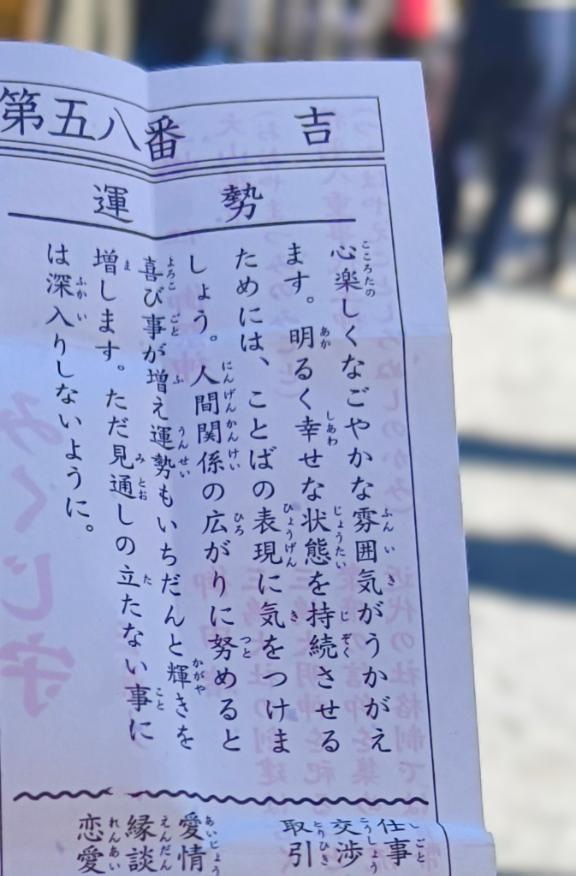 第五八番 吉
運勢
心楽しくなごやかな雰囲気がうかがえ
ます。明るく幸せな状態を持続させる
ためには、ことばの表現に気をつけま
しょう。人間関係の広がりに努めると
喜び事が増え運勢もいちだんと輝きを
増します。ただ見通しの立たない事に
は深入りしないように。
仕事
交渉
取引
愛情
縁談
恋愛
みくじ守